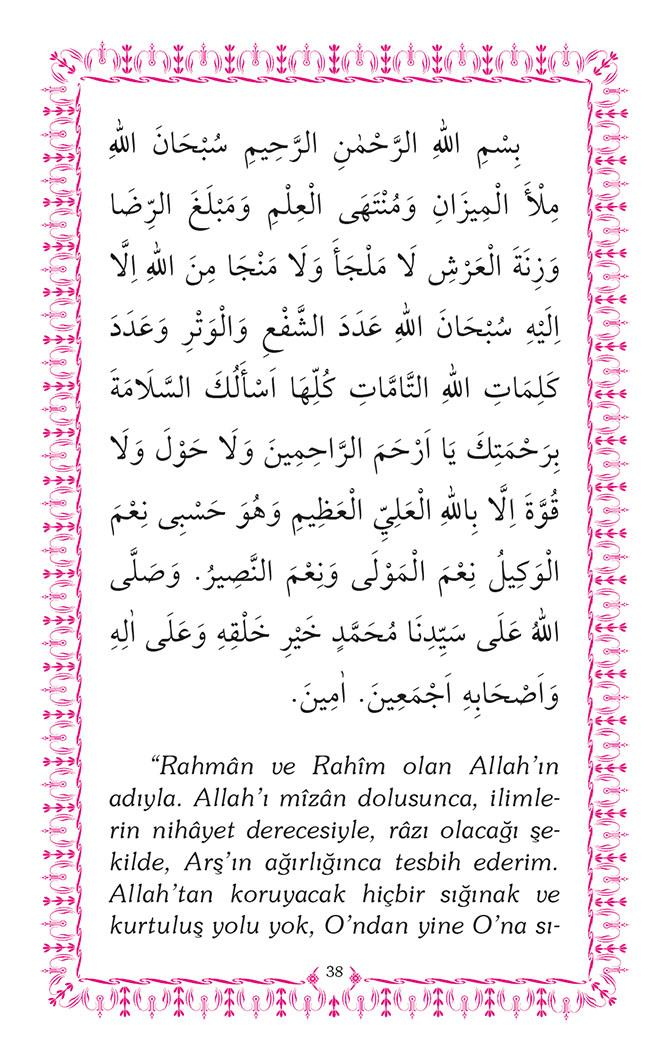 بِسْمِ اللّٰهِ الرَّحْمٰنِ الرَّحِيمِ سُبْحَانَ اللّٰهِ
مِلْأَ الْمِيزَانِ وَمُنْتَهَى الْعِلْمِ وَمَبْلَغَ الرِّضَا
وَزِنَةَ الْعَرْشِ لَا مَلْجَأَ وَلَا مَنْجَا مِنَ اللّٰهِ اِلَّا
اِلَيْهِ سُبْحَانَ اللّٰهِ عَدَدَ الشَّفْعِ وَالْوَتْرِ وَعَدَدَ
كَلِمَاتِ اللّٰهِ التَّامَّاتِ كُلِّهَا اَسْأَلُكَ السَّلَامَةَ
بِرَحْمَتِكَ يَا اَرْحَمَ الرَّاحِمِينَ وَلَا حَوْلَ وَلَا
قُوَّةَ اِلَّا بِاللّٰهِ الْعَلِيِّ الْعَظِيمِ وَهُوَ حَسْبِى نِعْمَ
الْوَكِيلُ نِعْمَ الْمَوْلَى وَنِعْمَ النَّصِيرُ. وَصَلَّى
اللّٰهُ عَلَى سَيِّدِنَا مُحَمَّدٍ خَيْرِ خَلْقِهِ وَعَلَى اٰلِهِ
وَاَصْحَابِهِ اَجْمَعِينَ. اٰمِينَ.
“Rahmân ve Rahîm olan Allah’ın
adıyla. Allah’ı mîzân dolusunca, ilimle-
rin nihâyet derecesiyle, râzı olacağı şe-
kilde, Arş’ın ağırlığınca tesbih ederim.
Allah’tan koruyacak hiçbir sığınak ve
kurtuluş yolu yok, O’ndan yine O’na sı-
38